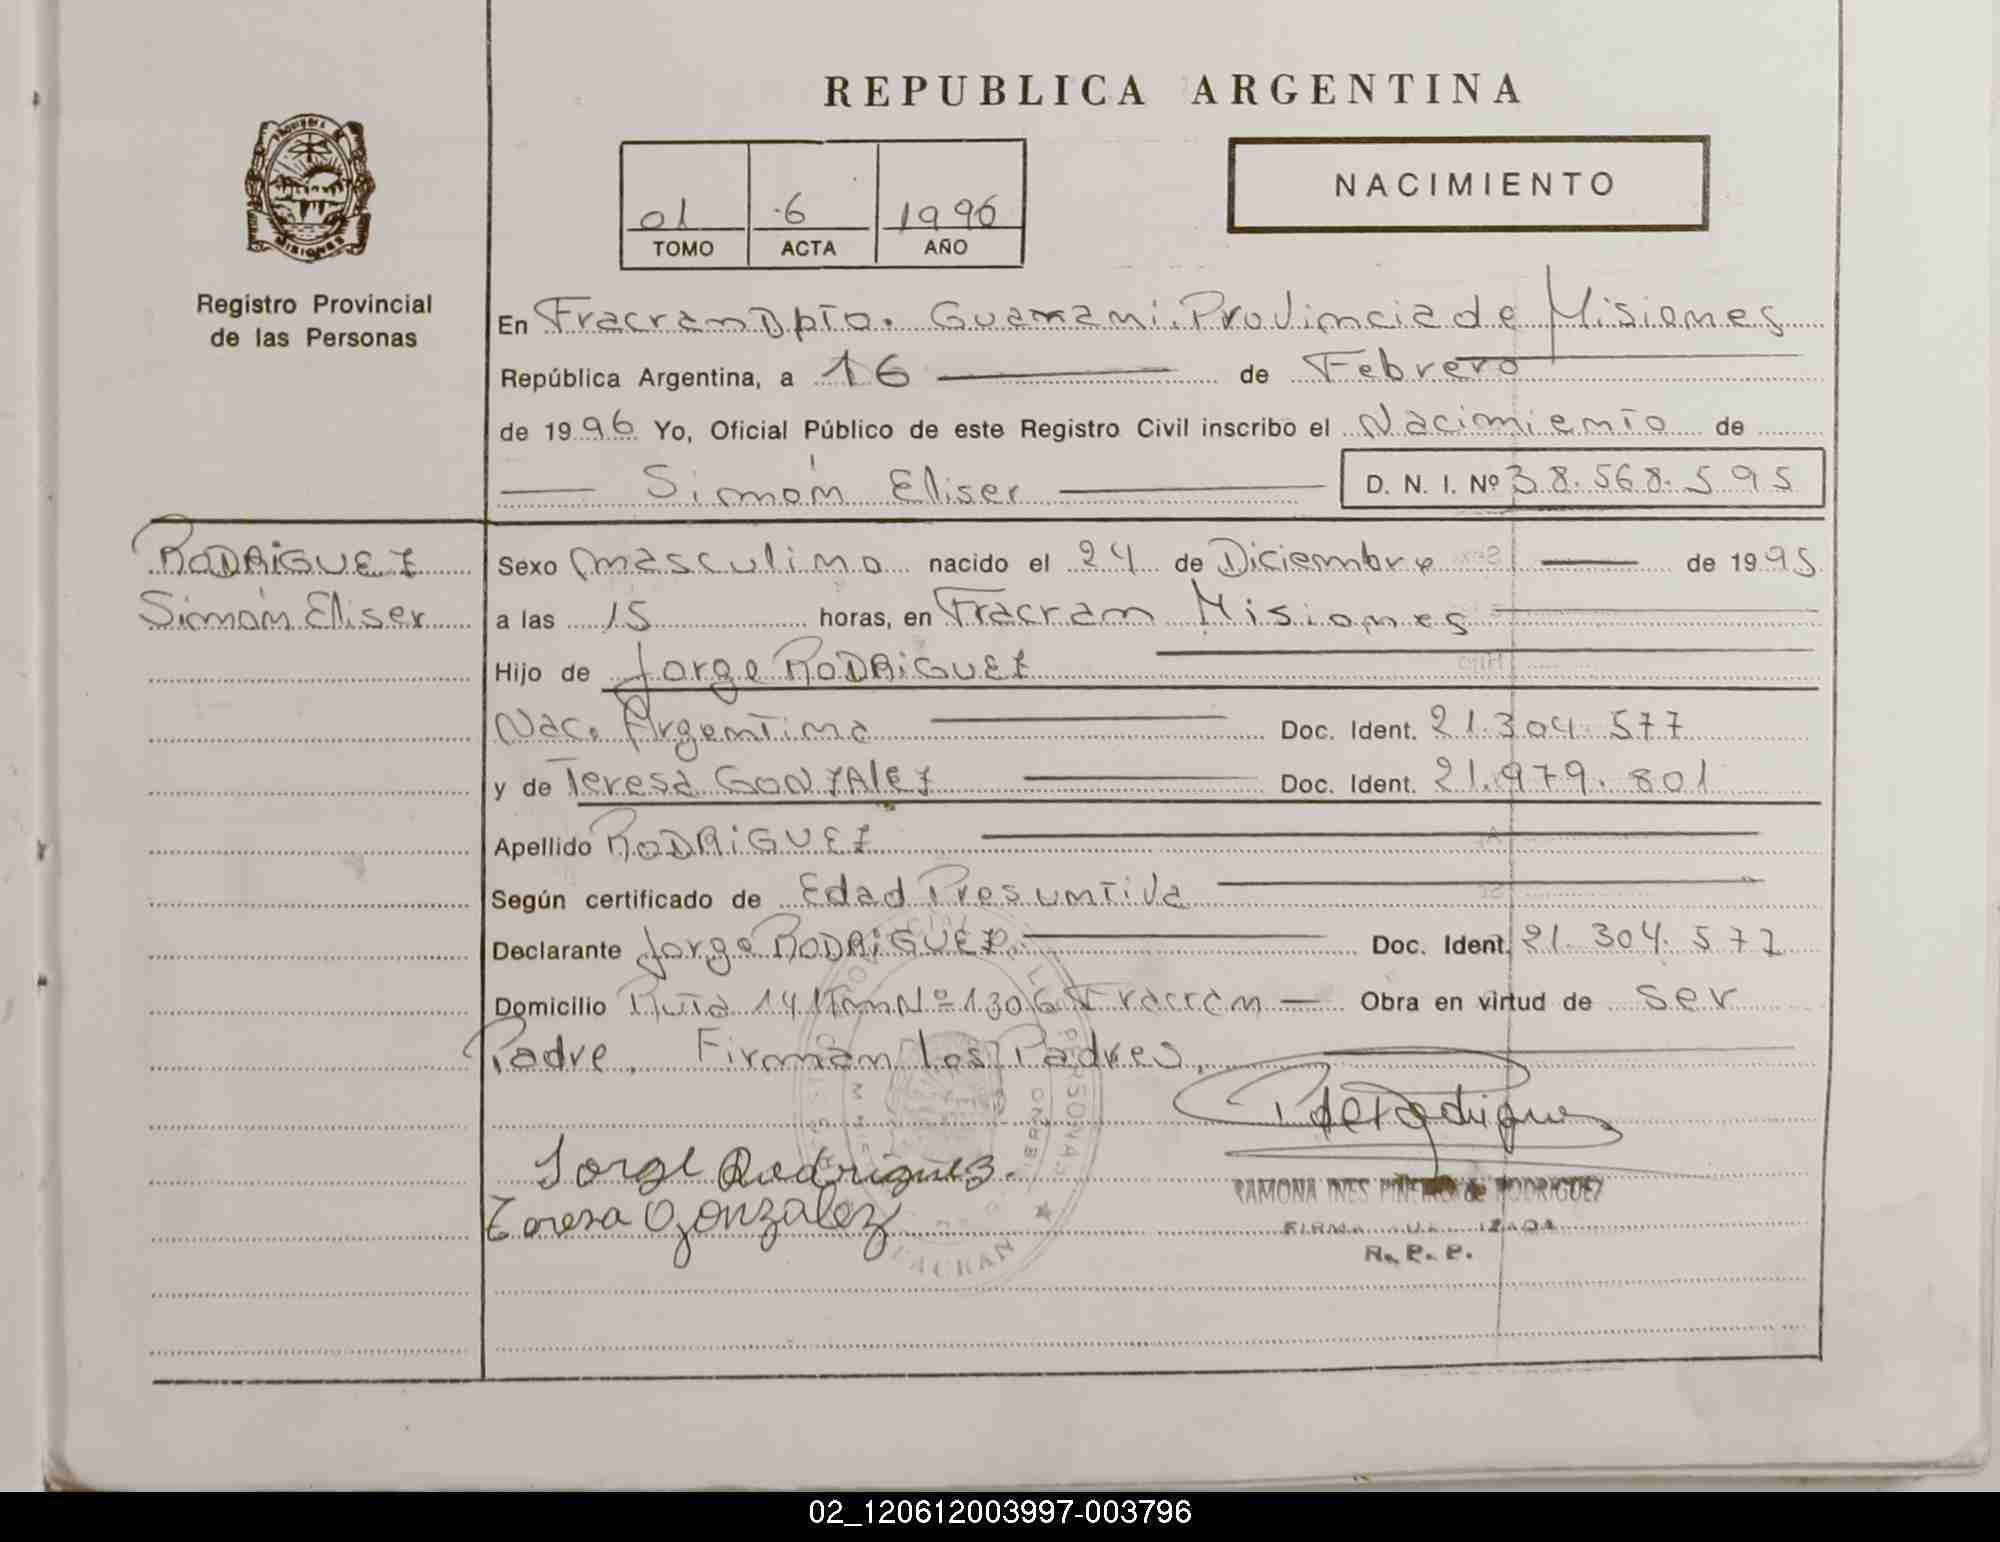 REPUBLICA ARGENTINA
PROVINCIA DE
MISIONES
Registro Provincial
de las Personas
01 6 1996
TOMO ACTA AÑO
NACIMIENTO
En Fracran Dpto. Guarani. Provincia de Misiones
República Argentina, a 16 de Febrero
de 1996 Yo, Oficial Público de este Registro Civil inscribo el Nacimiento de
Simón Eliser D. N. I. Nº 38.568.595
RODRIGUEZ
Simón Eliser
Sexo masculino nacido el 24 de Diciembre de 1995
a las 15 horas, en Fracran Misiones
Hijo de Jorge RODRIGUEZ
Nac. Argentina Doc. Ident. 21.304.577
y de Teresa GONZALEZ Doc. Ident. 21.979.801
Apellido RODRIGUEZ
Según certificado de Edad Presuntiva
Declarante Jorge RODRIGUEZ Doc. Ident. 21.304.577
Domicilio Ruta 14 Km Nº 1306 Fracran Obra en virtud de ser
Padre, Firman los Padres,
Jorge Rodriguez.
Teresa Gonzalez
RAMONA INES PIÑEIRO de RODRIGUEZ
FIRMA
R. P. P.
02_120612003997-003796